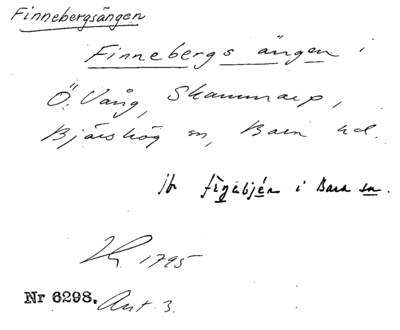 Finnebergsängen
Finnebergs ängen i
Ö. Vång, Skammarp,
Bjärshög sn, Bara hd.
jfr i Bara sn.
1795
Nr 6298. Akt. 3.